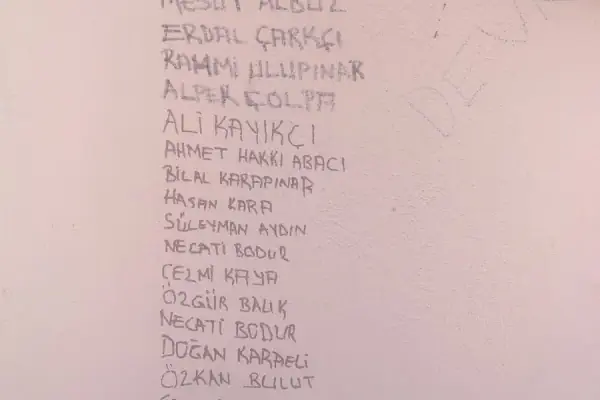 MESUT ALBUZ
ERDAL ÇARKÇI
RAHMİ ULUPINAR
ALPER ÇOLPA
ALİ KAYIKÇI
AHMET HAKKI ABACI
BİLAL KARAPINAR
HASAN KARA
SÜLEYMAN AYDIN
NECATİ BODUR
ÖZGÜR BALIK
NECATİ BODUR
DOĞAN KARAELİ
ÖZKAN BULUT